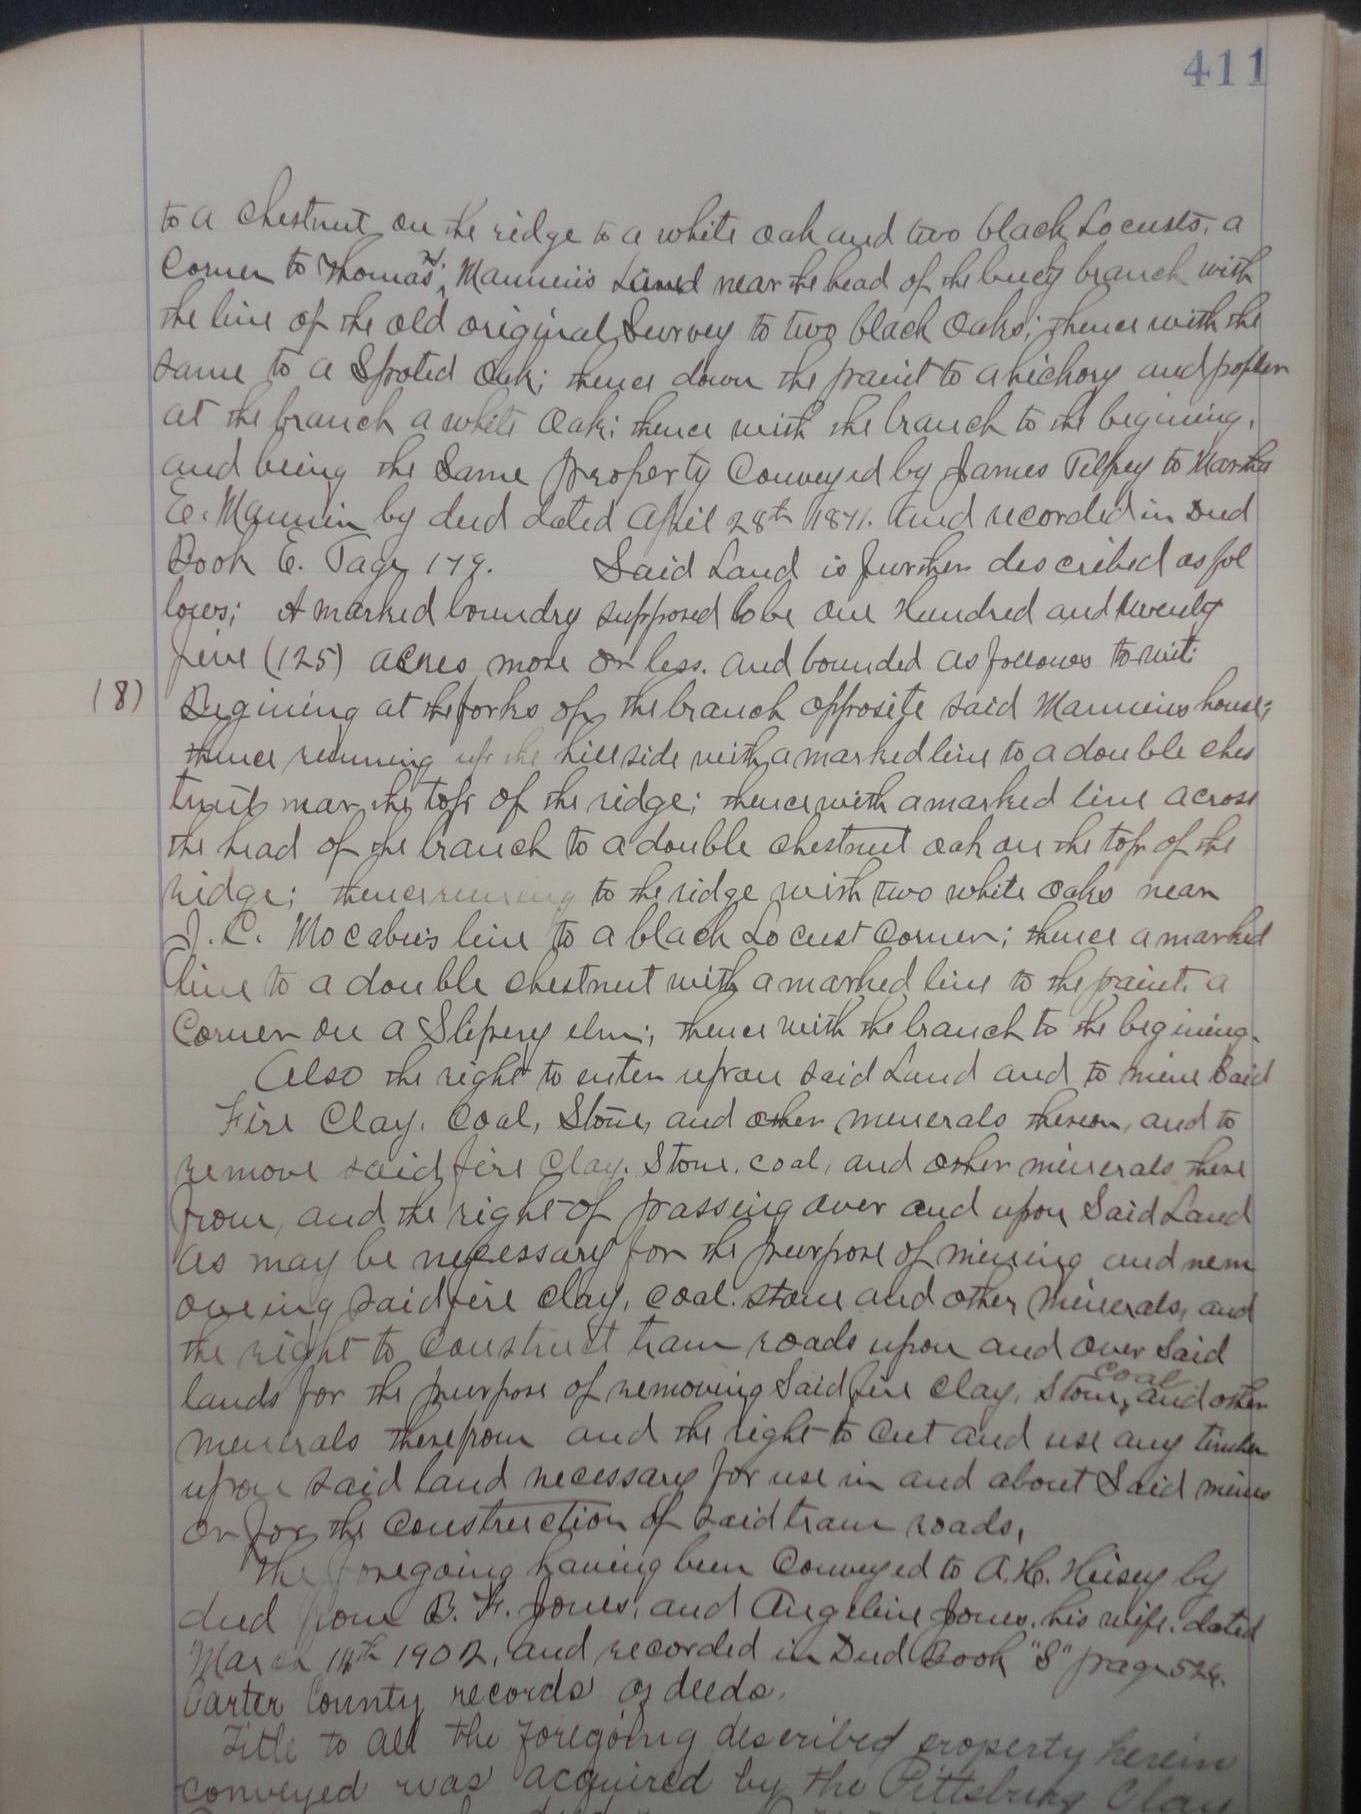 411
to a chestnut on the ridge to a white oak and two black Locusts, a
Corner to Thomas Mannin's Land near the head of the bucky branch with
the line of the old original Survey to two black oaks; thence with the
same to a Spoted Oak; thence down the praint to a hickory and poplar
at the branch a white Oak; thence with the branch to the begining,
and being the Same property Conveyed by James Tilfrey to Martha
E. Mannin by deed dated April 28th 1871. And recorded in Deed
Book E. Page 179. Said Land is further described as fol
lows; A marked boundry supposed to be one Hundred and twenty
five (125) acres more or less. and bounded as follows to-wit:
(8) Begining at the forks of the branch opposite said Mannins house;
thence running up the hillside with a marked line to a double ches
tnut near the top of the ridge; thence with a marked line across
the head of the branch to a double chestnut oak on the top of the
ridge; thence running to the ridge with two white oaks near
J. C. Mocabee's line to a black Locust Corner; thence a marked
line to a double chestnut with a marked line to the praint. a
Corner on a Slipery elm; thence with the branch to the begining.
Also the right to enter upon said Land and to mine Said
Fire Clay, Coal, Stone, and other minerals thereon, and to
remove said fire Clay, Stone, coal, and other minerals there
from, and the right of passing over and upon Said Land
as may be necessary for the purpose of mining and rem
oveing said fire clay, coal. stone and other minerals, and
the right to Construct tram roads upon and over Said
lands for the purpose of removing Said fire Clay, Stone, Coal and other
minerals therefrom and the right to cut and use any timber
upon said land necessary for use in and about Said mines
or for the Construction of said tram roads,
The foregoing having been Conveyed to A. H. Hisey by
deed from B. F. Jones, and Angeline Jones, his wife, dated
March 14th 1902, and recorded in Deed Book "S" page 524.
Carter County records of deeds.
Title to all the foregoing described property herein
conveyed was acquired by the Pittsburg Clay